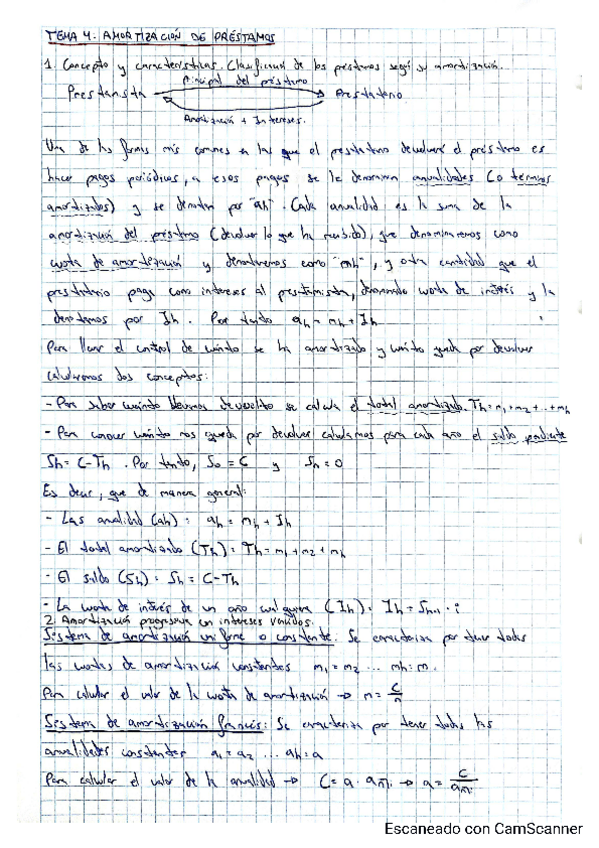 TEMA 4: AMORTIZACIÓN DE PRÉSTAMOS
1. Concepto y características. Clasificación de los préstamos según su amortización.
Principal del préstamo
Prestamista Prestatario
Amortización + Intereses.
Una de las formas más comunes en las que el prestatario devolverá el préstamo es
hacer pagos periódicos, a esos pagos se le denominan anualidades (o términos
amortizados) y se denotan por "ah". Cada anualidad es la suma de la
amortización del préstamo (devolver lo que ha recibido), que denominaremos como
cuota de amortización y denotaremos como "mh", y otra cantidad que el
prestatario paga como intereses al prestamista, denominado cuota de interés y la
denotamos por Ih. Por tanto ah = mh + Ih
Para llevar el control de cuánto se ha amortizado y cuánto queda por devolver
calcularemos dos conceptos:
- Para saber cuánto llevamos devuelto se calcula el total amortizado. Th = m1 + m2 + .. + mh
- Para conocer cuánto nos queda por devolver calculamos para cada año el saldo pendiente
Sh = C-Th. Por tanto, S0 = C y Sn = 0
Es decir, que de manera general:
- Las analidad (ah): ah = mh + Ih
- El total amortizado (Th): Th = m1 + m2 + mh
- El saldo (Sh): Sh = C-Th
- La cuota de interés de un año cualquiera (Ih): Ih = Sh-1 · i
2. Amortización progresiva con intereses vencidos.
Sistema de amortización uniforme o constante: Se caracteriza por tener todas
las cuotas de amortización constantes m1 = m2 ... mh = m.
Para calcular el valor de la cuota de amortización → m = C/n
Sistema de amortización francés: Se caracteriza por tener todas las
anualidades constantes a1 = a2 ... ah = a
Para calcular el valor de la anualidad → C = a · an¬i → a = C/an¬i
Escaneado con CamScanner